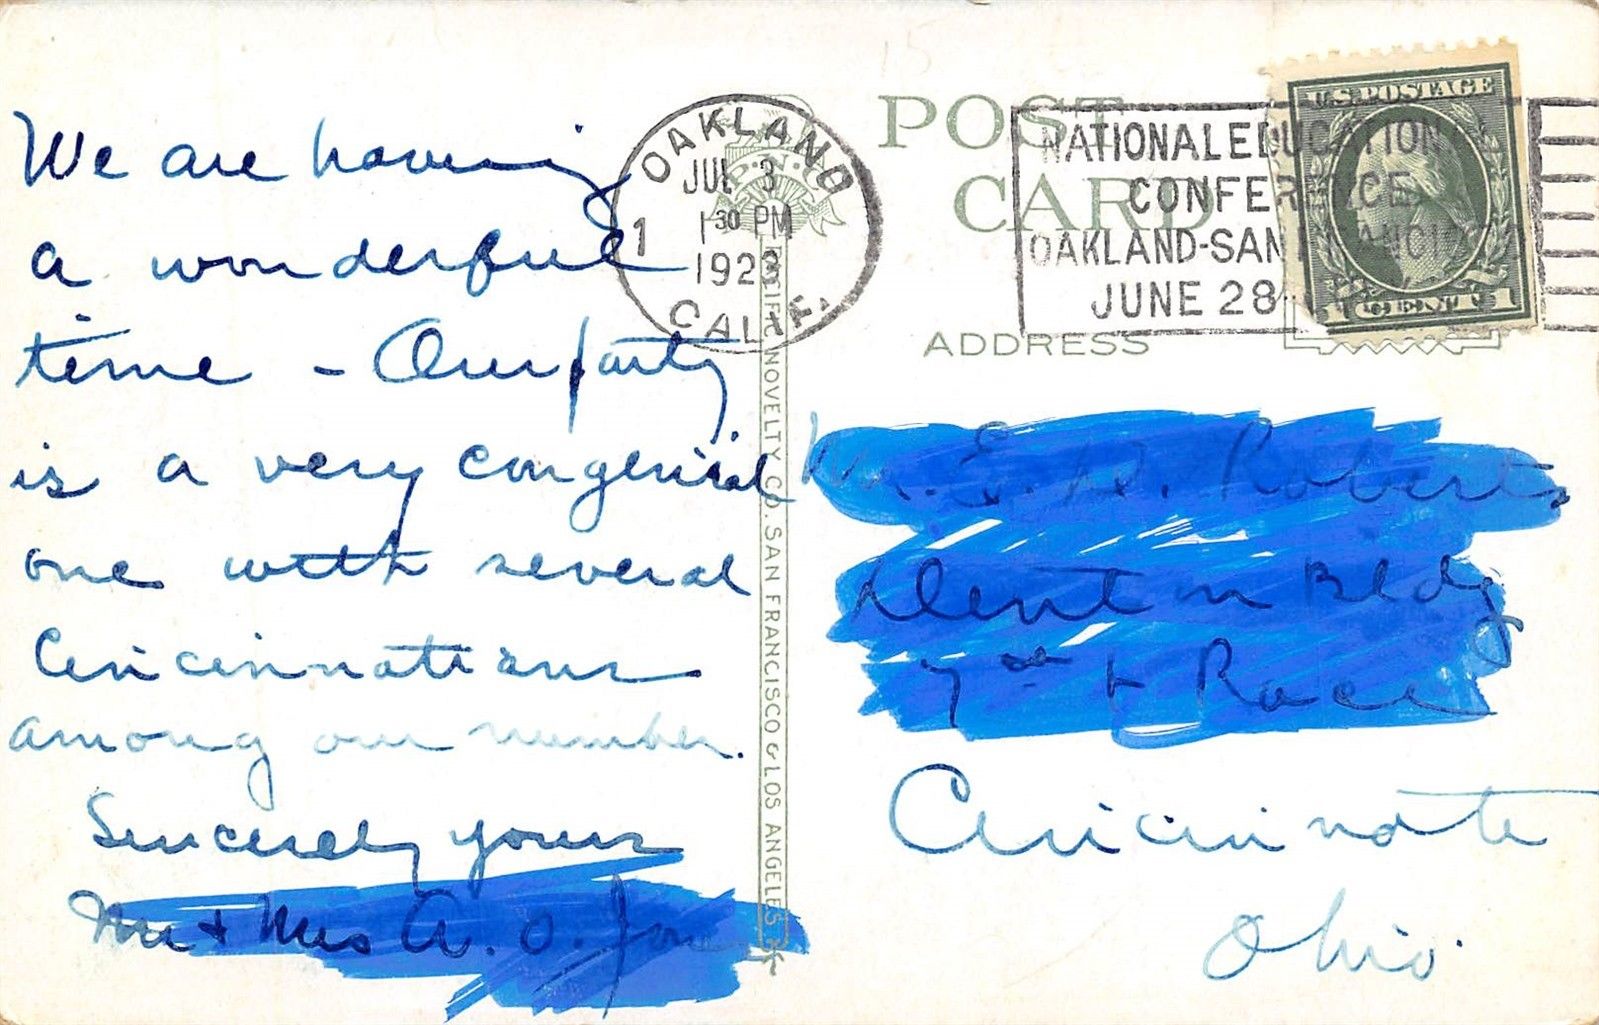 We are having
a wonderful
time - Our party
is a very congenial
one with several
Cincinnatians
among our number.
Sincerely yours
Mr & Mrs A. O. Jones
OAKLAND
JUL 3
1 30 PM
1923
CALIF.
1
PACIFIC NOVELTY CO. SAN FRANCISCO & LOS ANGELES
P.N.
POST
CARD
ADDRESS
NATIONAL EDUCATION
CONFERENCE
OAKLAND-SAN FRANCISCO
JUNE 28
U.S. POSTAGE
1 CENT 1
Mr. E. D. Roberts,
Denton Bldg
7th & Race
Cincinnati
Ohio.